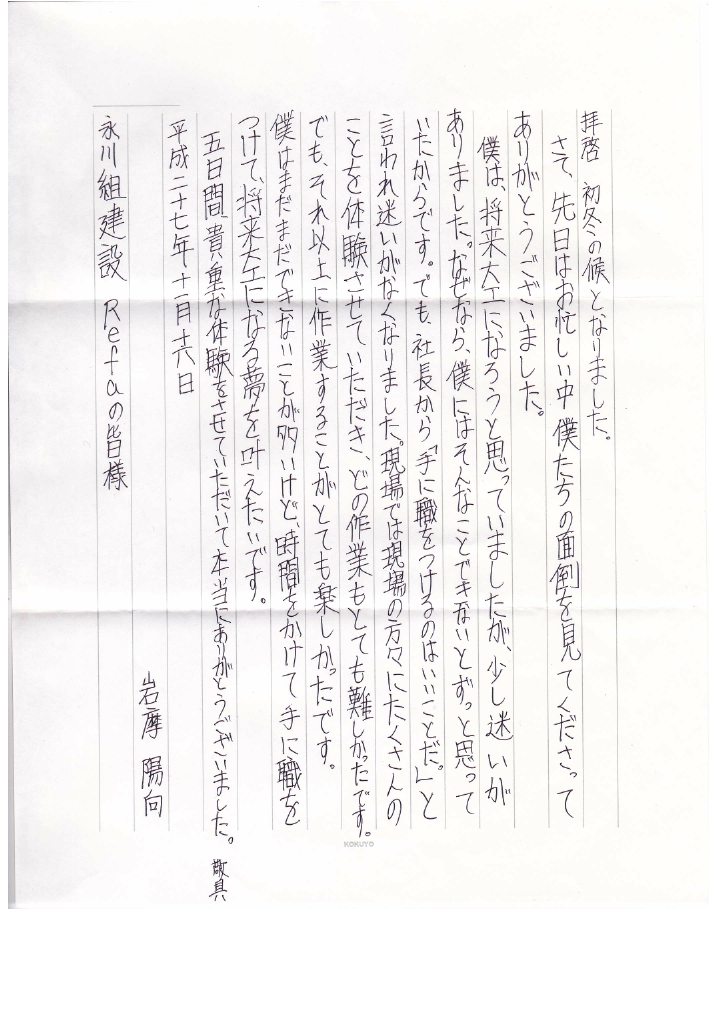 拝啓 初冬の候となりました。
さて、先日はお忙しい中僕たちの面倒を見てくださって
ありがとうございました。
僕は、将来大工になろうと思っていましたが、少し迷いが
ありました。なぜなら、僕にはそんなことできないとずっと思って
いたからです。でも、社長から「手に職をつけるのはいいことだ。」と
言われ迷いがなくなりました。現場では現場の方々にたくさんの
ことを体験させていただき、どの作業もとても難しかったです。
でも、それ以上に作業することがとても楽しかったです。
僕はまだまだできないことが多いけど、時間をかけて手に職を
つけて、将来大工になる夢を叶えたいです。
五日間、貴重な体験をさせていただいて本当にありがとうございました。 敬具
平成二十七年十一月十六日
岩摩 陽向
永川組建設 Refaの皆様
KOKUYO